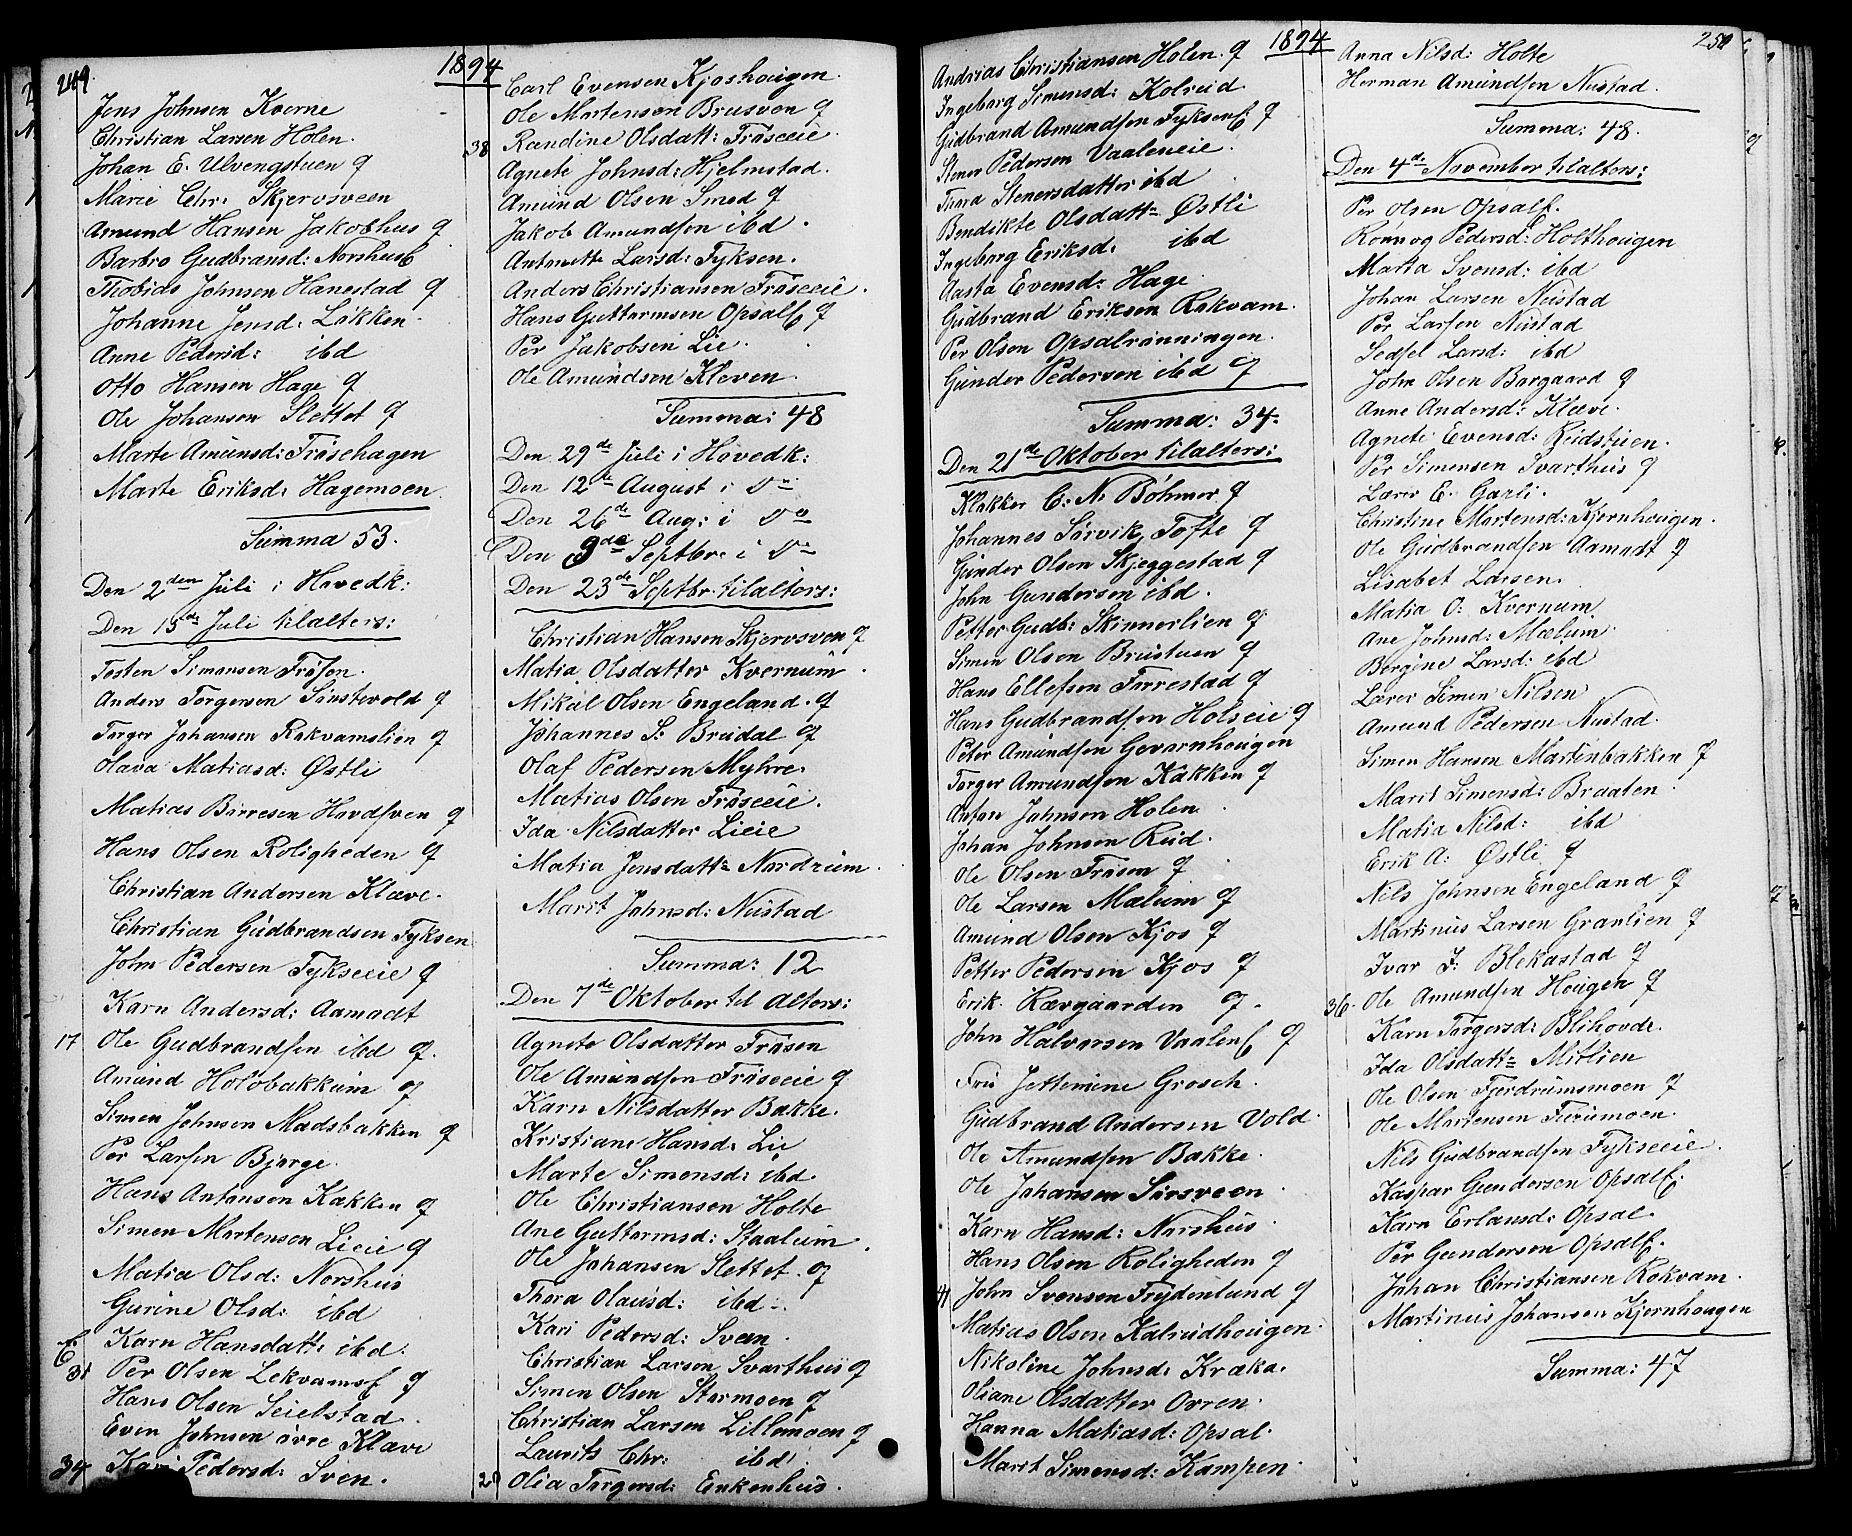 249
1894
Jens Johnsen Kverne
Christian Larsen Holen.
Johan E. Ulvengstuen g
Marie Chr: Skjervsveen
Amund Hansen Jakobhus g
Barbro Gudbransd: Norshus
Thobias Johnsen Hanestad g
Johanne Jensd: Løkken
Anne Pedersd: ibd
Otto Hansen Hage g
Ole Johansen Slettet g
Marte Amundsd: Frøsehagen
Marte Eriksd: Hagemoen
Summa 53.
Den 2den Juli i Hovedk:
Den 15de Juli tilalters:
Tosten Simensen Frøsen.
Anders Torgersen Sinstevold g
Torger Johansen Rokvamslien g
Olava Matiasd: Østli
Matias Børresen Hovdsven g
Hans Olsen Roligheden g
Christian Andersen Klæve.
Christian Gudbrandsen Fyksen
John Pedersen Fykseeie g
Karn Andersd: Aamodt
17 Ole Gudbrandsen ibd g.
Amund Holobakkum g
Simen Johnsen Madsbakken g
Per Larsen Bjørge.
Hans Antonsen Kakken g
Simen Mortensen Lieie g
Matia Olsd: Norshus
Gurine Olsd: ibd
Karn Hansdatt: ibd.
31 Per Olsen Lekvams g
Hans Olsen Seielstad.
Even Johnsen øvre Klæve
34 Kari Pedersd: Sven.
Carl Evensen Kjoshougen.
Ole Martensen Brusven g
38 Randine Olsdatt: Frøseeie
Agnete Johnsd: Hjelmstad.
Amund Olsen Smed g
Jakob Amundsen ibd.
Antonette Larsd: Fyksen.
Anders Christiansen Frøseeie.
Hans Guttormsen Opsal g
Per Jakobsen Lie.
Ole Amundsen Kleven
Summa: 48
Den 29de Juli i Hovedk:
Den 12te August i do
Den 26de Aug: i do
Den 9de Septbr. i do
Den 23de Septbr. tilalters:
Christian Hansen Skjervsven g
Matia Olsdatter Kvernum.
Mikal Olsen Engeland. g
Johannes S: Brudal g
Olaf Pedersen Myhre.
Matias Olsen Frøseeie.
Ida Nilsdatter Lieie
Matia Jensdatt= Nordrum.
Marit Johnsd: Nustad
Summa: 12
Den 7de Oktober til alters:
Agnete Olsdatter Frøsen
Ole Amundsen Frøseeie g
Karn Nilsdatter Bakke.
Kristiane Hansd: Lie
Marte Simensd: ibd
Ole Christiansen Holte
Ane Guttormsd: Staalum.
Ole Johansen Slettet. g
Thora Olausd: ibd.
Kari Pedersd: Sven.
Christian Larsen Svarthus g
Simen Olsen Stormoen g
Christian Larsen Lillemoen g
Laurits Chr: ibd.
20 Olia Torgersd: Enkenhus.
1894
Andrias Christiansen Holen. g
Ingeborg Simensd: Kolreid
Gudbrand Amundsen Fyksen g
Stener Pedersen Vaaleneie.
Thora Stenersdatter ibd
Bendikte Olsdatt= Østli
Ingeborg Eriksd: ibd
Aasta Evensd: Hage
Gudbrand Eriksen Rokvam.
Per Olsen Opsalrønningen.
Gunder Pedersen ibd g
Summa: 34.
Den 21de Oktober tilalters:
Klokker C: N. Bøhmer g
Johannes Sørvik Tofte g
Gunder Olsen Skjeggestad g
John Gundersen ibd.
Petter Gudb: Skinnerlien g
Simen Olsen Brustuen g
Hans Ellefsen Furrestad g
Hans Gudbrandsen Holseie g
Peter Amundsen Govarnhougen
Torger Amundsen Kakken g
Anton Johnsen Holen
Johan Johnsen Rud.
Ole Olsen Frøsen g
Ole Larsen Mælum g
Amund Olsen Kjos g
Petter Pedersen Kjos g
Erik Rævgaarden g.
John Halvorsen Vaalen g
Fru Jettemine Grosch.
Gudbrand Andersen Vold
Ole Amundsen Bakke.
Ole Johansen Sørsveen
Karn Hansd: Norshus
Hans Olsen Roligheden g
John Svensen Frydenlund g
Matias Olsen Kalrudhougen.
Nikoline Johnsd: Kræka.
Oliane Olsdatter Orren.
Hanna Matiasd: Opsal.
Marit Simensd: Kampen.
250
Anna Nilsd: Holte
Herman Amundsen Nustad.
Summa: 48.
Den 4de November tilalters:
Per Olsen Opsal.
Rønnog Pedersd: Holthougen
Marta Svensd: ibd
Johan Larsen Nustad
Per Larsen Nustad
Sedsel Larsd: ibd
John Olsen Borgaard g
Anne Andersd: Klæve.
Agnete Evensd: Rudstuen.
Per Simensen Svarthus g
Lærer E. Garli.
Christine Martensd: Kjernhougen.
Ole Gudbrandsen Aamodt g
Lisabet Larsen.
Matia O: Kvernum
Ane Johnsd: Mælum.
Bergine Larsd: ibd
Lærer Simen Nilsen
Amund Pedersen Nustad.
Simen Hansen Martinbakken g
Marit Simensd: Braaten.
Matia Nilsd: ibd
Erik A: Østli g
Nils Johnsen Engeland g
Martinus Larsen Granlien g
Ivar J: Blekastad g
36. Ole Amundsen Hougen g
Karn Torgersd: Blihovde.
Ida Olsdatt= Mitlien
Ole Olsen Fjerdrumsmoen g
Ole Martensen Furumoen.
Nils Gudbrandsen Fykseeie.
Kaspar Gundersen Opsal.
Karn Erlansd: Opsal.
Per Gundersen Opsal.
Johan Christiansen Rokvam.
Martinus Johansen Kjernhougen
Summa: 47